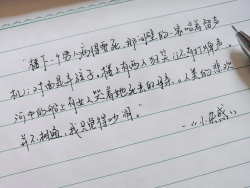 “楼下一个男人病得要死，那间壁的一家唱着留声
机；对面是弄孩子。楼上有两人狂笑；还有打牌声。
河中的船上有女人哭着她死去的母亲。人类的悲欢
并不相通，我只觉得他们吵闹。”
—《小杂感》